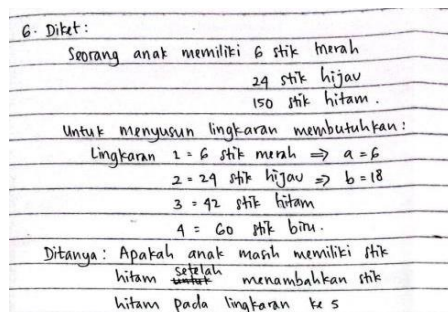 6. Diket:
Seorang anak memiliki 6 stik merah
24 stik hijau
150 stik hitam.
Untuk menyusun lingkaran membutuhkan:
Lingkaran 1 = 6 stik merah ⇒ a = 6
2 = 24 stik hijau ⇒ b = 18
3 = 42 stik hitam
4 = 60 stik biru.
Ditanya: Apakah anak masih memiliki stik
hitam setelah menambahkan stik
hitam pada lingkaran ke 5